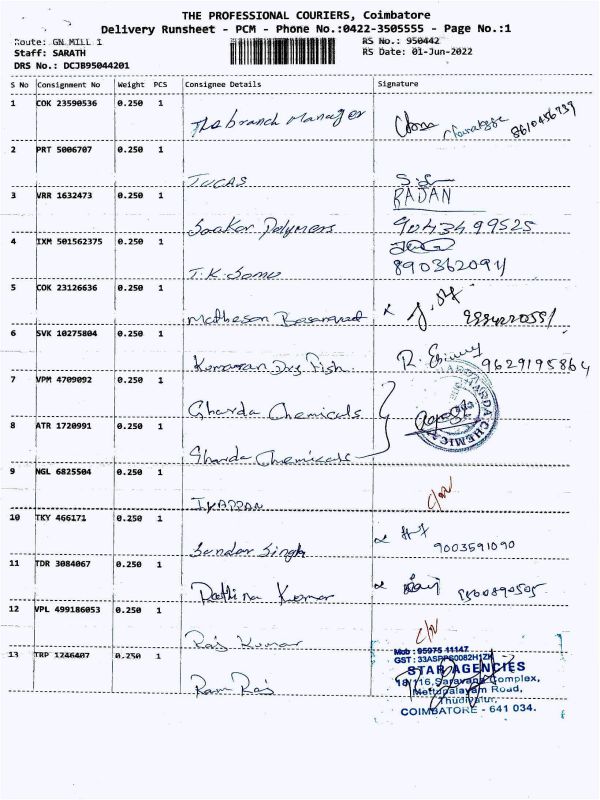 THE PROFESSIONAL COURIERS, Coimbatore
Delivery Runsheet - PCM - Phone No.:0422-3505555 - Page No.:1
Route: GN MILL 1 RS No.: 950442
Staff: SARATH RS Date: 01-Jun-2022
DRS No.: DCJB95044201
S No Consignment No Weight PCS Consignee Details Signature
1 COK 23590536 0.250 1
The branch Manager 8610456739
2 PRT 5006707 0.250 1
TUCAS
3 VRR 1632473 0.250 1 RAJAN
Saaker Polymers 9043499525
4 IXM 501562375 0.250 1
T.K. Samu 890362094
5 COK 23126636 0.250 1
Matheson
6 SVK 10275804 0.250 1
Kumaran Drs Fish. 9629195864
7 VPM 4709092 0.250 1
Gharda Chemicals
8 ATR 1720991 0.250 1
Gharda Chemicals
9 NGL 6825504 0.250 1
IYAPPAN
10 TKY 466171 0.250 1
Sundar Singh 9003591090
11 TDR 3084067 0.250 1
Rathina Kumar
12 VPL 499186053 0.250 1
Raj Kumar
13 TRP 1246407 0.250 1
Ram Raj
Mob : 95975 11147
GST : 33ASPPS0082H1ZK
STAR AGENCIES
18/116, Saravana Complex,
Mettupalayam Road,
Thudiyalur,
COIMBATORE - 641 034.